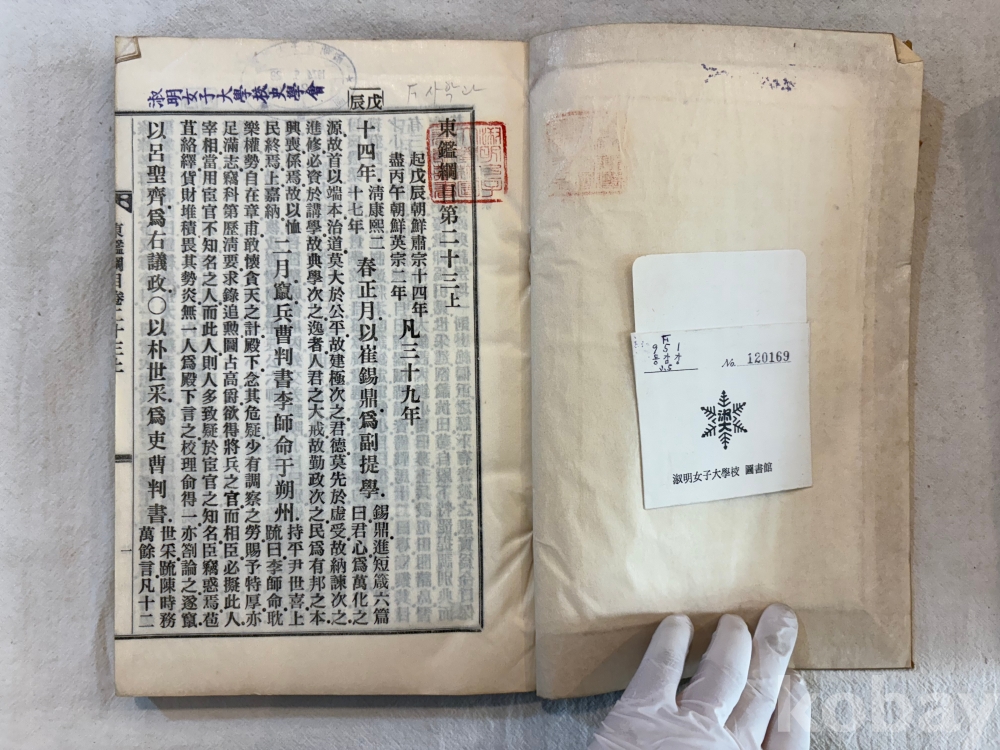 淑明女子大學校史學會
戊辰
東鑑綱目第二十三上
起戊辰朝鮮肅宗十四年
盡丙午朝鮮英宗二年
凡三十九年
十四年
淸康熙二
十七年
春正月以崔錫鼎爲副提學
錫鼎進短箴六篇
曰君心爲萬化之
源故首以端本治道莫大於公平故建極次之君德莫先於虛受故納諫次之
進修必資於講學故典學次之逸者人君之大戒故勤政次之民爲有邦之本
興喪係焉故以恤
民終焉上嘉納
二月竄兵曹判書李師命于朔州
持平尹世喜上
疏曰李師命耽
樂權勢自在章甫敢懷貪天之計殿下念其危疑少有調察之勞賜予特厚亦
足滿志竊科第歷淸要求錄追勳圖占高爵欲得將兵之官而相臣必擬此人
宰相當用宦官不知名之人而此人則人多致疑於宦官之知名臣竊惑焉苞
苴絡繹貨財堆積畏其勢炎無一人爲殿下言之校理兪得一亦劄論之遂竄
以呂聖齊爲右議政○以朴世采爲吏曹判書
世采疏陳時務
萬餘言凡十二
一
951
No. 120169
淑大
淑明女子大學校 圖書館
kobay